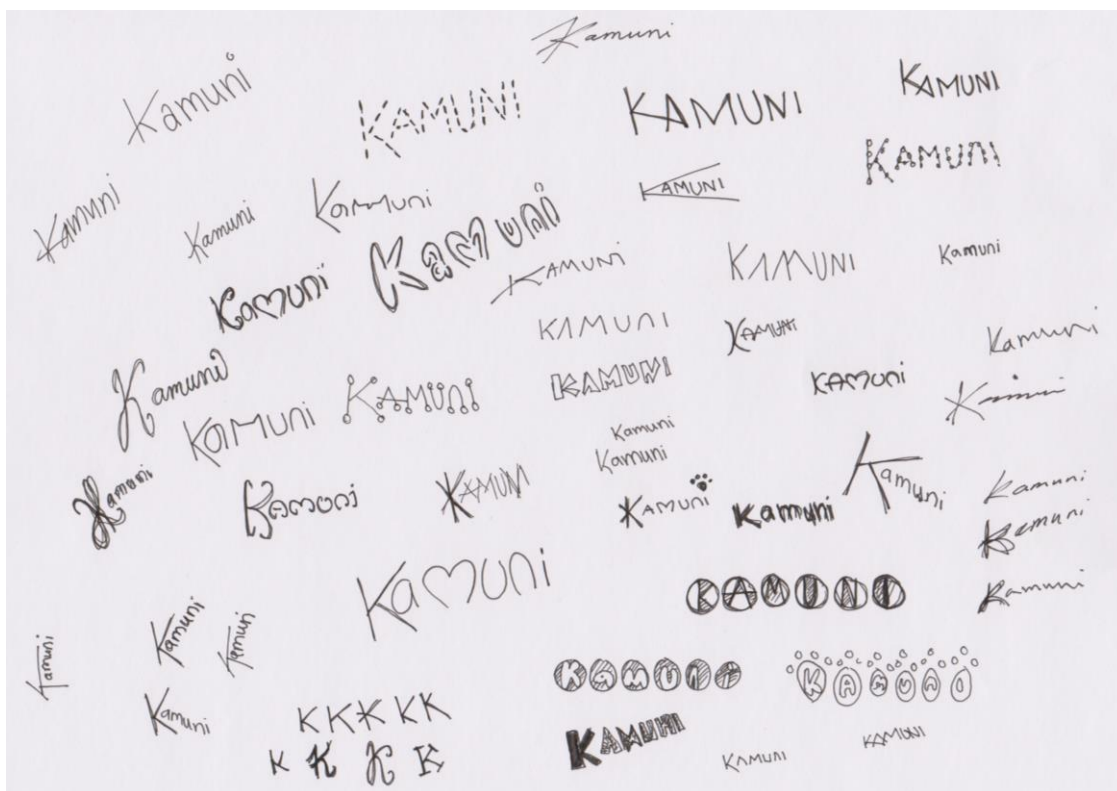 Kamuni
Kamuni
KAMUNI
KAMUNI
KAMUNI
KAMUNI
KAMUNI
Kamuni
Kamuni
Kamuni
Kamuni
Kamuni
KAMUNI
KAMUNI
Kamuni
Kamuni
KAMUNI
KAMUNI
Kamuni
Kamuni
KAMUNI
KAMUNI
KAMUNI
Kamuni
KAMUNI
Kamuni
Kamuni
Kamuni
Kamuni
KAMUNI
KAMUNI
Kamuni
Kamuni
Kamuni
Kamuni
Kamuni
KAMUNI
Kamuni
Kamuni
Kamuni
Kamuni
Kamuni
KAMUNI
KAMUNI
Kamuni
K K K K K
KAMUNI
KAMUNI
K K K K
KAMUNI